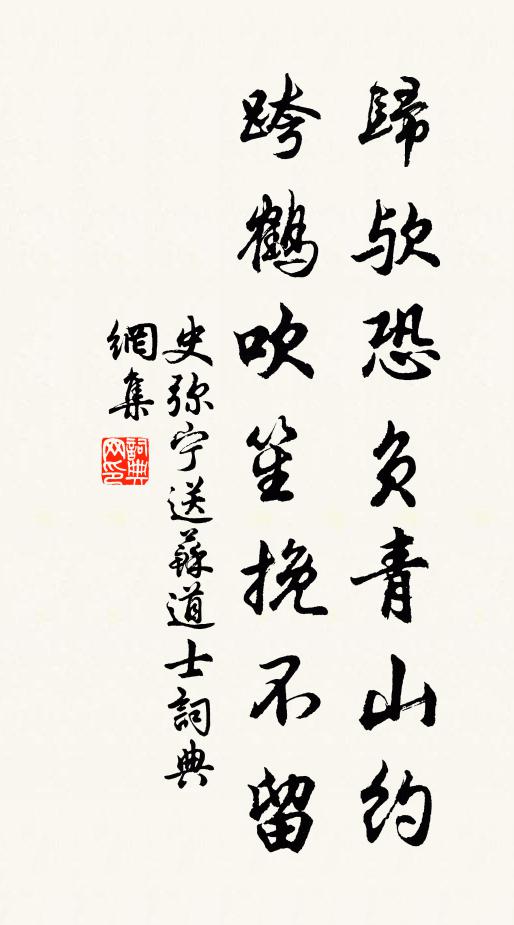 歸欤恐负青山约
跨鶴吹笙挽不留
史弥宁送蘇道士詞典
網集
詞典
网印